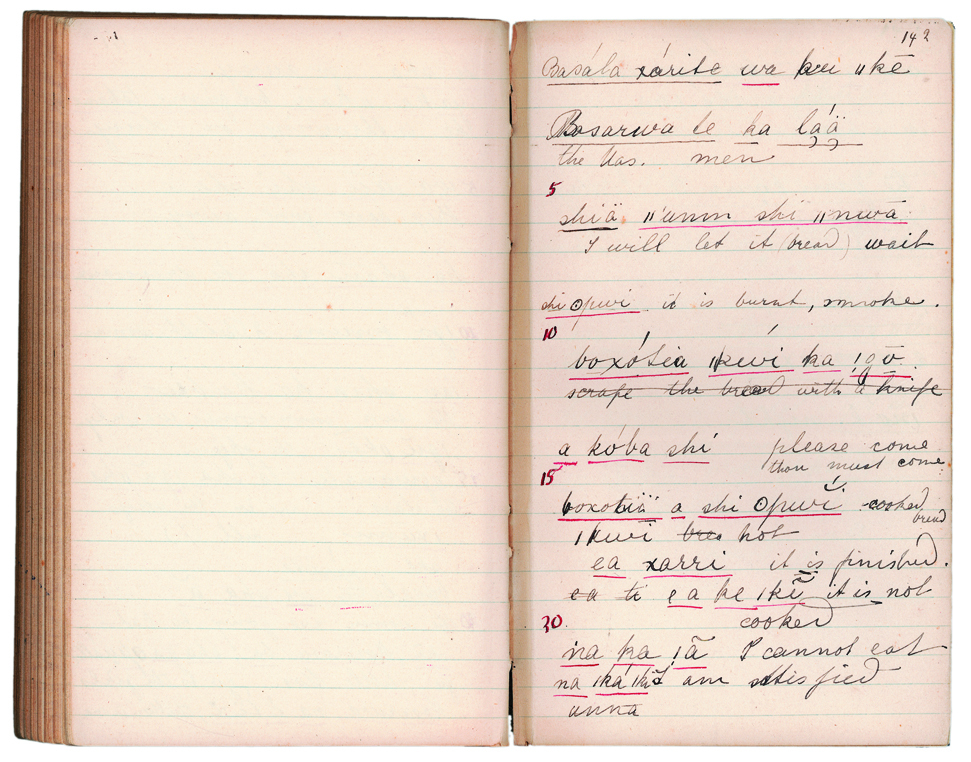 142
Basála xárite wa kwi ǁkē
Basarwa te ka láä
the Uas. men
5
shiä ǁ'umm shi ǁnwā
I will let it (bread) wait
shi ʘpwi it is burnt, smoke.
10
boxótia ǁkwí ka ǃgō
scrape the bread with a knife
a kóba shi please come
thou must come
15
boxotiä a shi ʘpwi cooked
bread
ǀkwi hot
ea xarri it is finished.
ea ti ea ke ǀkĩ it is not
cooked
20
na ka ǀā I cannot eat
na am satisfied
unnā